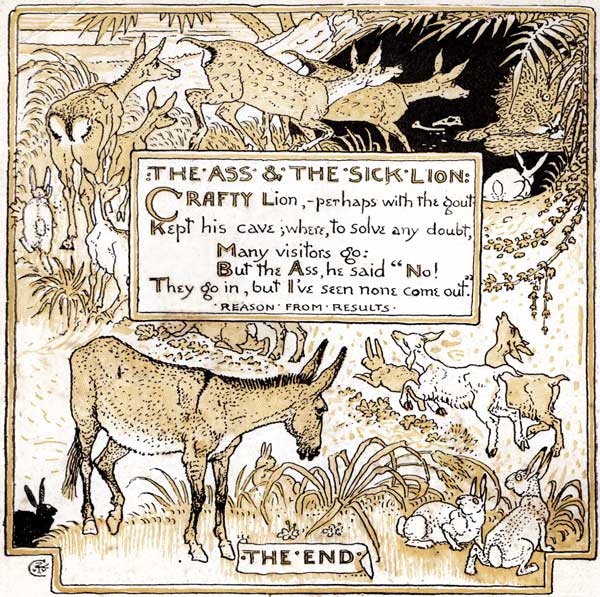 :THE·ASS·&·THE·SICK·LION:
CRAFTY Lion,-perhaps with the gout
Kept his cave; where, to solve any doubt,
Many visitors go:
But the Ass, he said "No!
They go in, but I've seen none come out."
·REASON·FROM·RESULTS·
·THE·END·